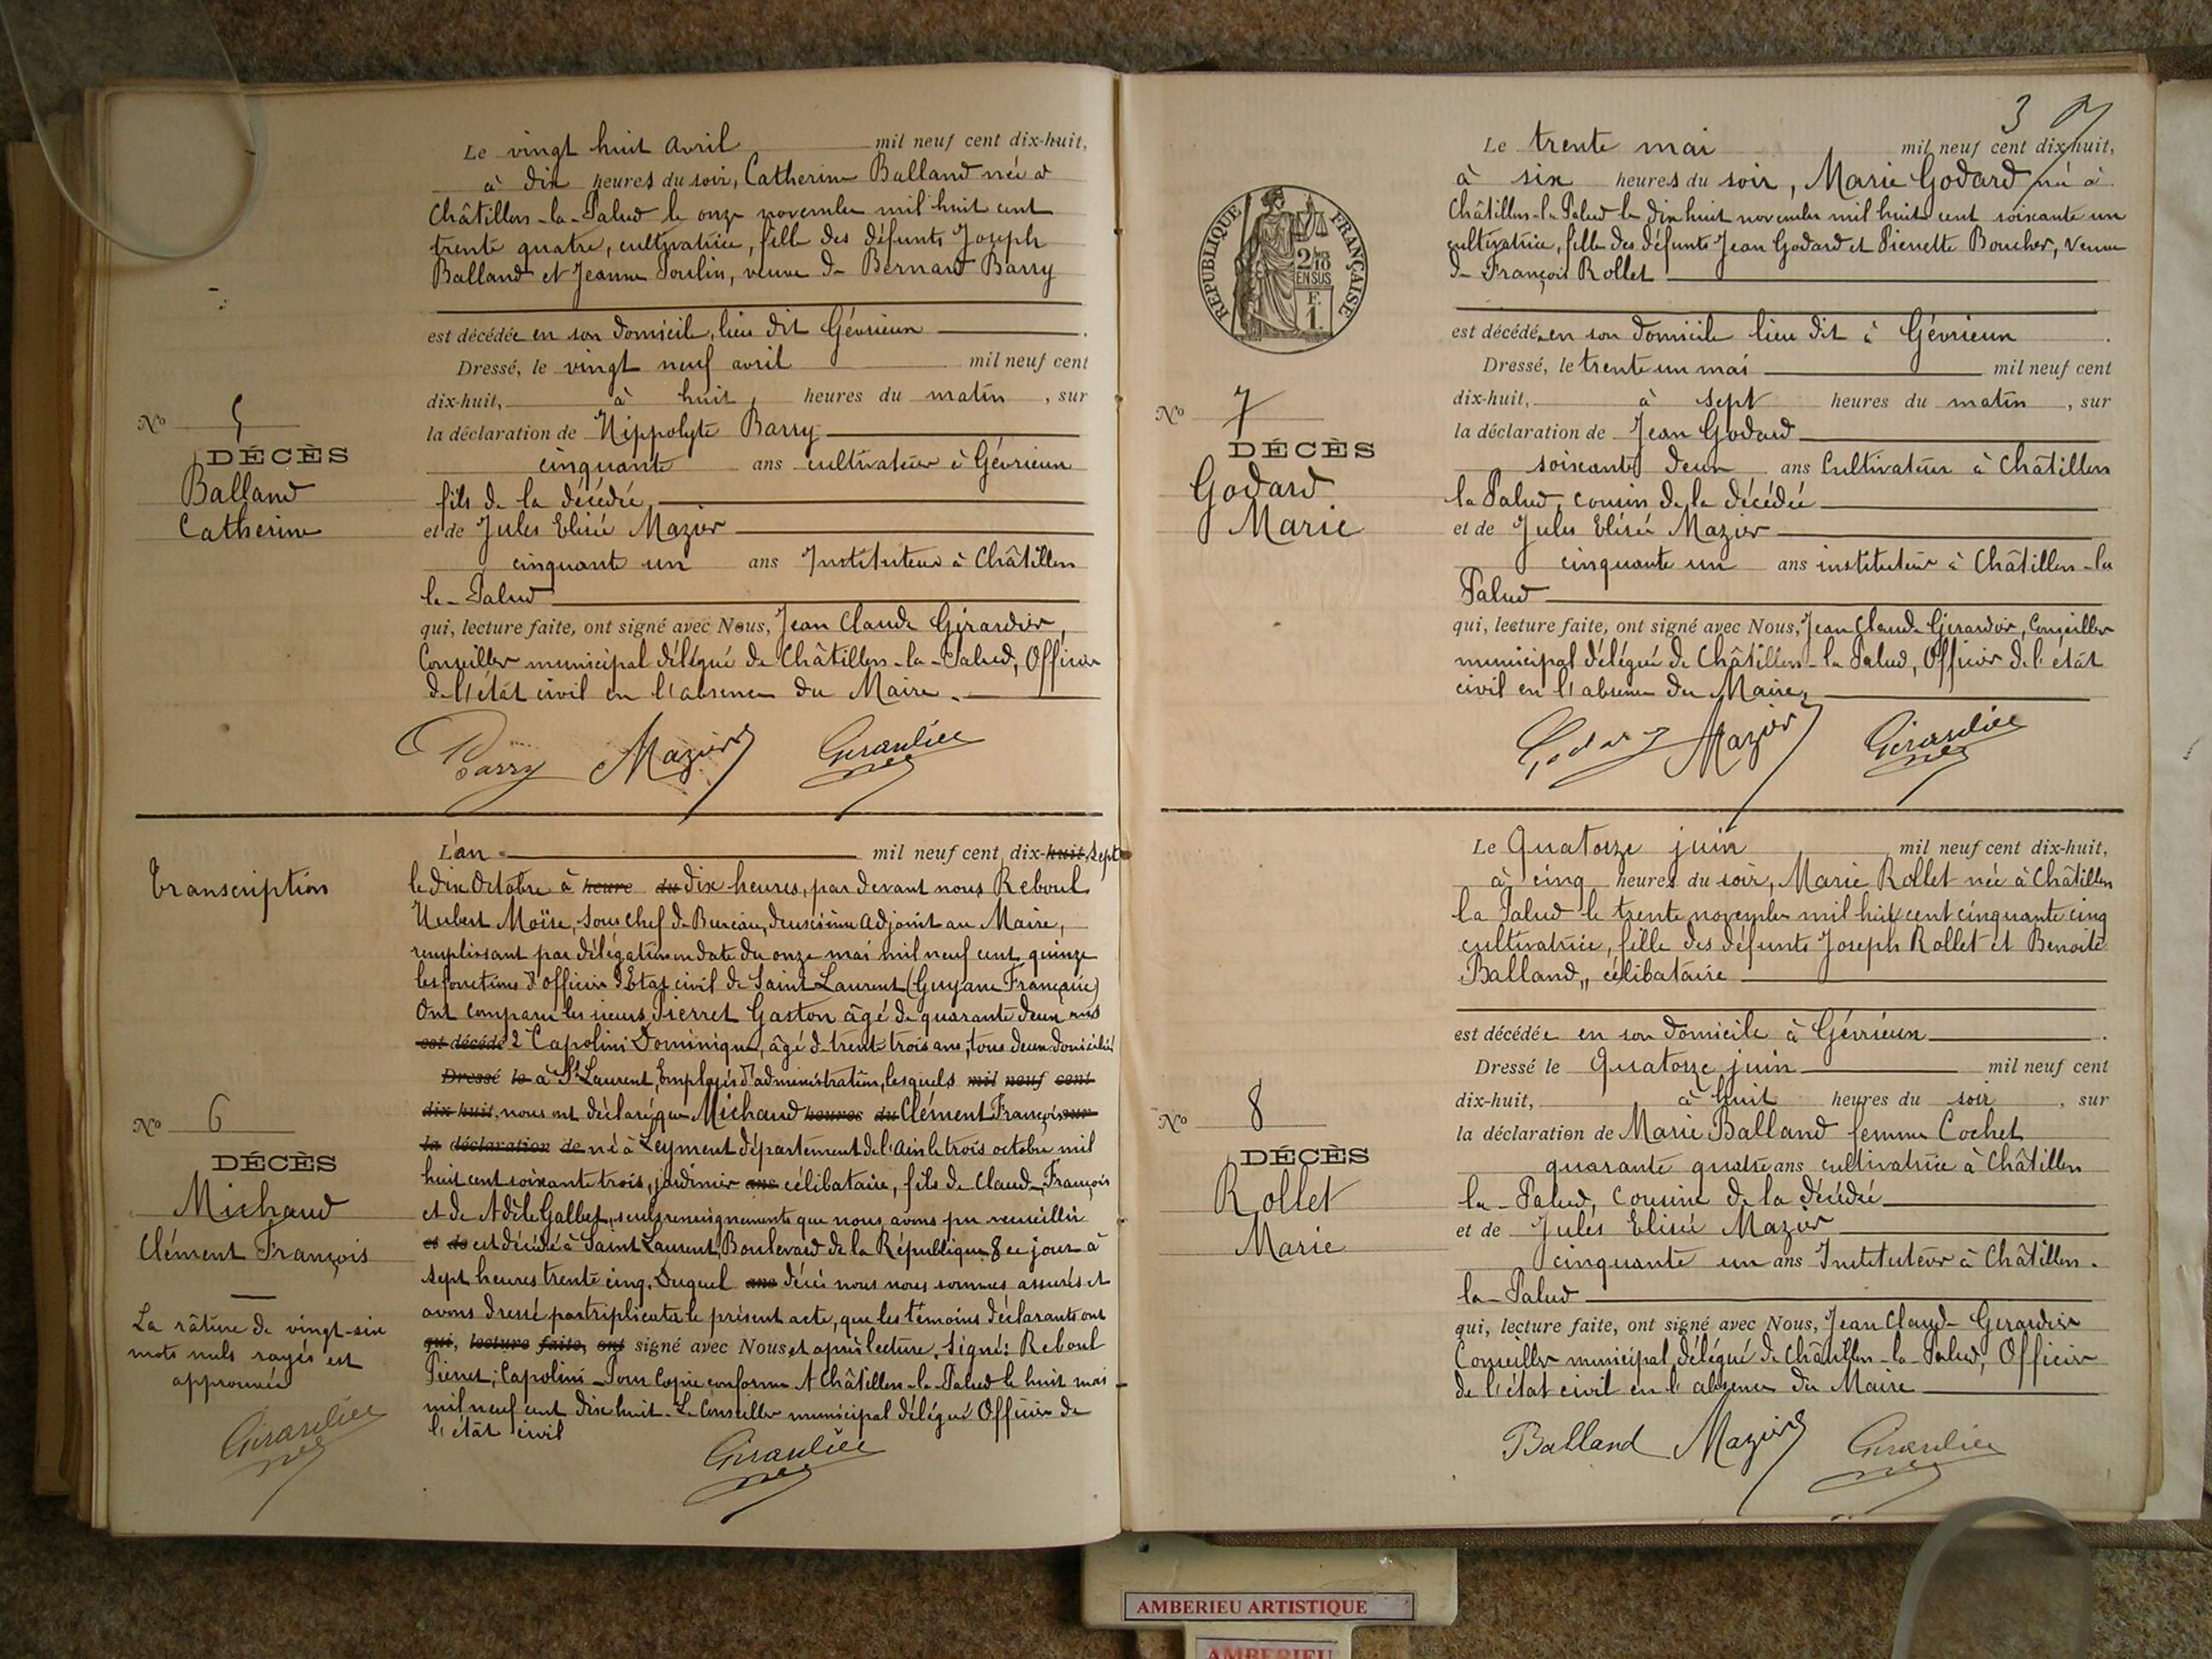 Le vingt huit avril mil neuf cent dix-huit,
à dix heures du soir, Catherine Balland née à
Châtillon-la-Palud le onze novembre mil huit cent
trente quatre, cultivatrice, fille des défunts Joseph
Balland et Jeanne Soulin, veuve de Bernard Barry
est décédée en son domicile, lieu dit Gévrieux
Dressé, le vingt neuf avril mil neuf cent
dix-huit, à huit heures du matin, sur
la déclaration de Hippolyte Barry
cinquante ans cultivateur à Gévrieux
fils de la décédée
et de Jules Elisée Mazier
cinquante un ans Instituteur à Châtillon
la-Palud
qui, lecture faite, ont signé avec Nous, Jean Claude Girardier,
Conseiller municipal délégué de Châtillon-la-Palud, Officier
de l'état civil en l'absence du Maire.
Barry Mazier Girardier
No 5
DÉCÈS
Balland
Catherine
Transcription
No 6
DÉCÈS
Michaud
Clément François
La râture de vingt-six
mots nuls rayés est
approuvée
Girardier
L'an mil neuf cent dix-huit sept
le dix Octobre à heure du dix heures, par devant nous Reboul
Hubert Moïse, sous chef de Bureau, deuxième adjoint au Maire,
remplissant par délégation en date du onze mai mil neuf cent quinze
les fonctions d'officier d'Etat civil de Saint Laurent (Guyane Française)
Ont comparu les sieurs Pierret Gaston âgé de quarante deux ans
est décédé 2° Capolini Dominique, âgé de trente trois ans, tous deux domiciliés
Dressé le à St Laurent, Employés d'administration, lesquels mil neuf cent
dix-huit, nous ont déclaré que Michaud heures du Clément François sur
la déclaration de né à Leyment département de l'Ain le trois octobre mil
huit cent soixante trois, jardinier ans célibataire, fils de Claude François
et de Adèle Galbet, seuls renseignements que nous avons pu recueillir
et de est décédé à Saint Laurent, Boulevard de la République 8 ce jour à
sept heures trente cinq. Duquel ans décès nous nous sommes assurés et
avons dressé par triplicata le présent acte, que les témoins déclarants ont
qui, lecture faite, ont signé avec Nous et après lecture. Signé: Reboul
Pierret; Capolini - Pour Copie conforme A Châtillon-la-Palud le huit mai
mil neuf cent dix huit. Le Conseiller municipal délégué Officier de
l'état civil
Girardier
3
RÉPUBLIQUE FRANÇAISE
2/10 EN SUS
F. 1.
Le trente mai mil neuf cent dix-huit,
à six heures du soir, Marie Godard née à
Châtillon-la-Palud le dix huit novembre mil huit cent soixante un
cultivatrice, fille des défunts Jean Godard et Pierrette Boucher, veuve
de François Rollet
est décédée en son domicile lieu dit à Gévrieux
Dressé, le trente un mai mil neuf cent
dix-huit, à sept heures du matin, sur
la déclaration de Jean Godard
soixante deux ans Cultivateur à Châtillon
la Palud, cousin de la décédée
et de Jules Elisée Mazier
cinquante un ans instituteur à Châtillon-la
Palud
qui, lecture faite, ont signé avec Nous, Jean Claude Girardier, Conseiller
municipal délégué de Châtillon-la Palud, Officier de l'état
civil en l'absence du Maire,
Godard Mazier Girardier
No 7
DÉCÈS
Godard
Marie
Le Quatorze juin mil neuf cent dix-huit,
à cinq heures du soir, Marie Rollet née à Châtillon
la Palud le trente novembre mil huit cent cinquante cinq
cultivatrice, fille des défunts Joseph Rollet et Benoite
Balland, célibataire
est décédée en son domicile à Gévrieux
Dressé le Quatorze juin mil neuf cent
dix-huit, à huit heures du soir, sur
la déclaration de Marie Balland femme Cochet
quarante quatre ans cultivatrice à Châtillon
la-Palud, Cousine de la décédée
et de Jules Elisée Mazier
cinquante un ans Instituteur à Châtillon-
la-Palud
qui, lecture faite, ont signé avec Nous, Jean Claude Girardier
Conseiller municipal délégué de Châtillon-la-Palud, Officier
de l'état civil en l'absence du Maire
Balland Mazier Girardier
No 8
DÉCÈS
Rollet
Marie
AMBERIEU ARTISTIQUE
AMBERIEU